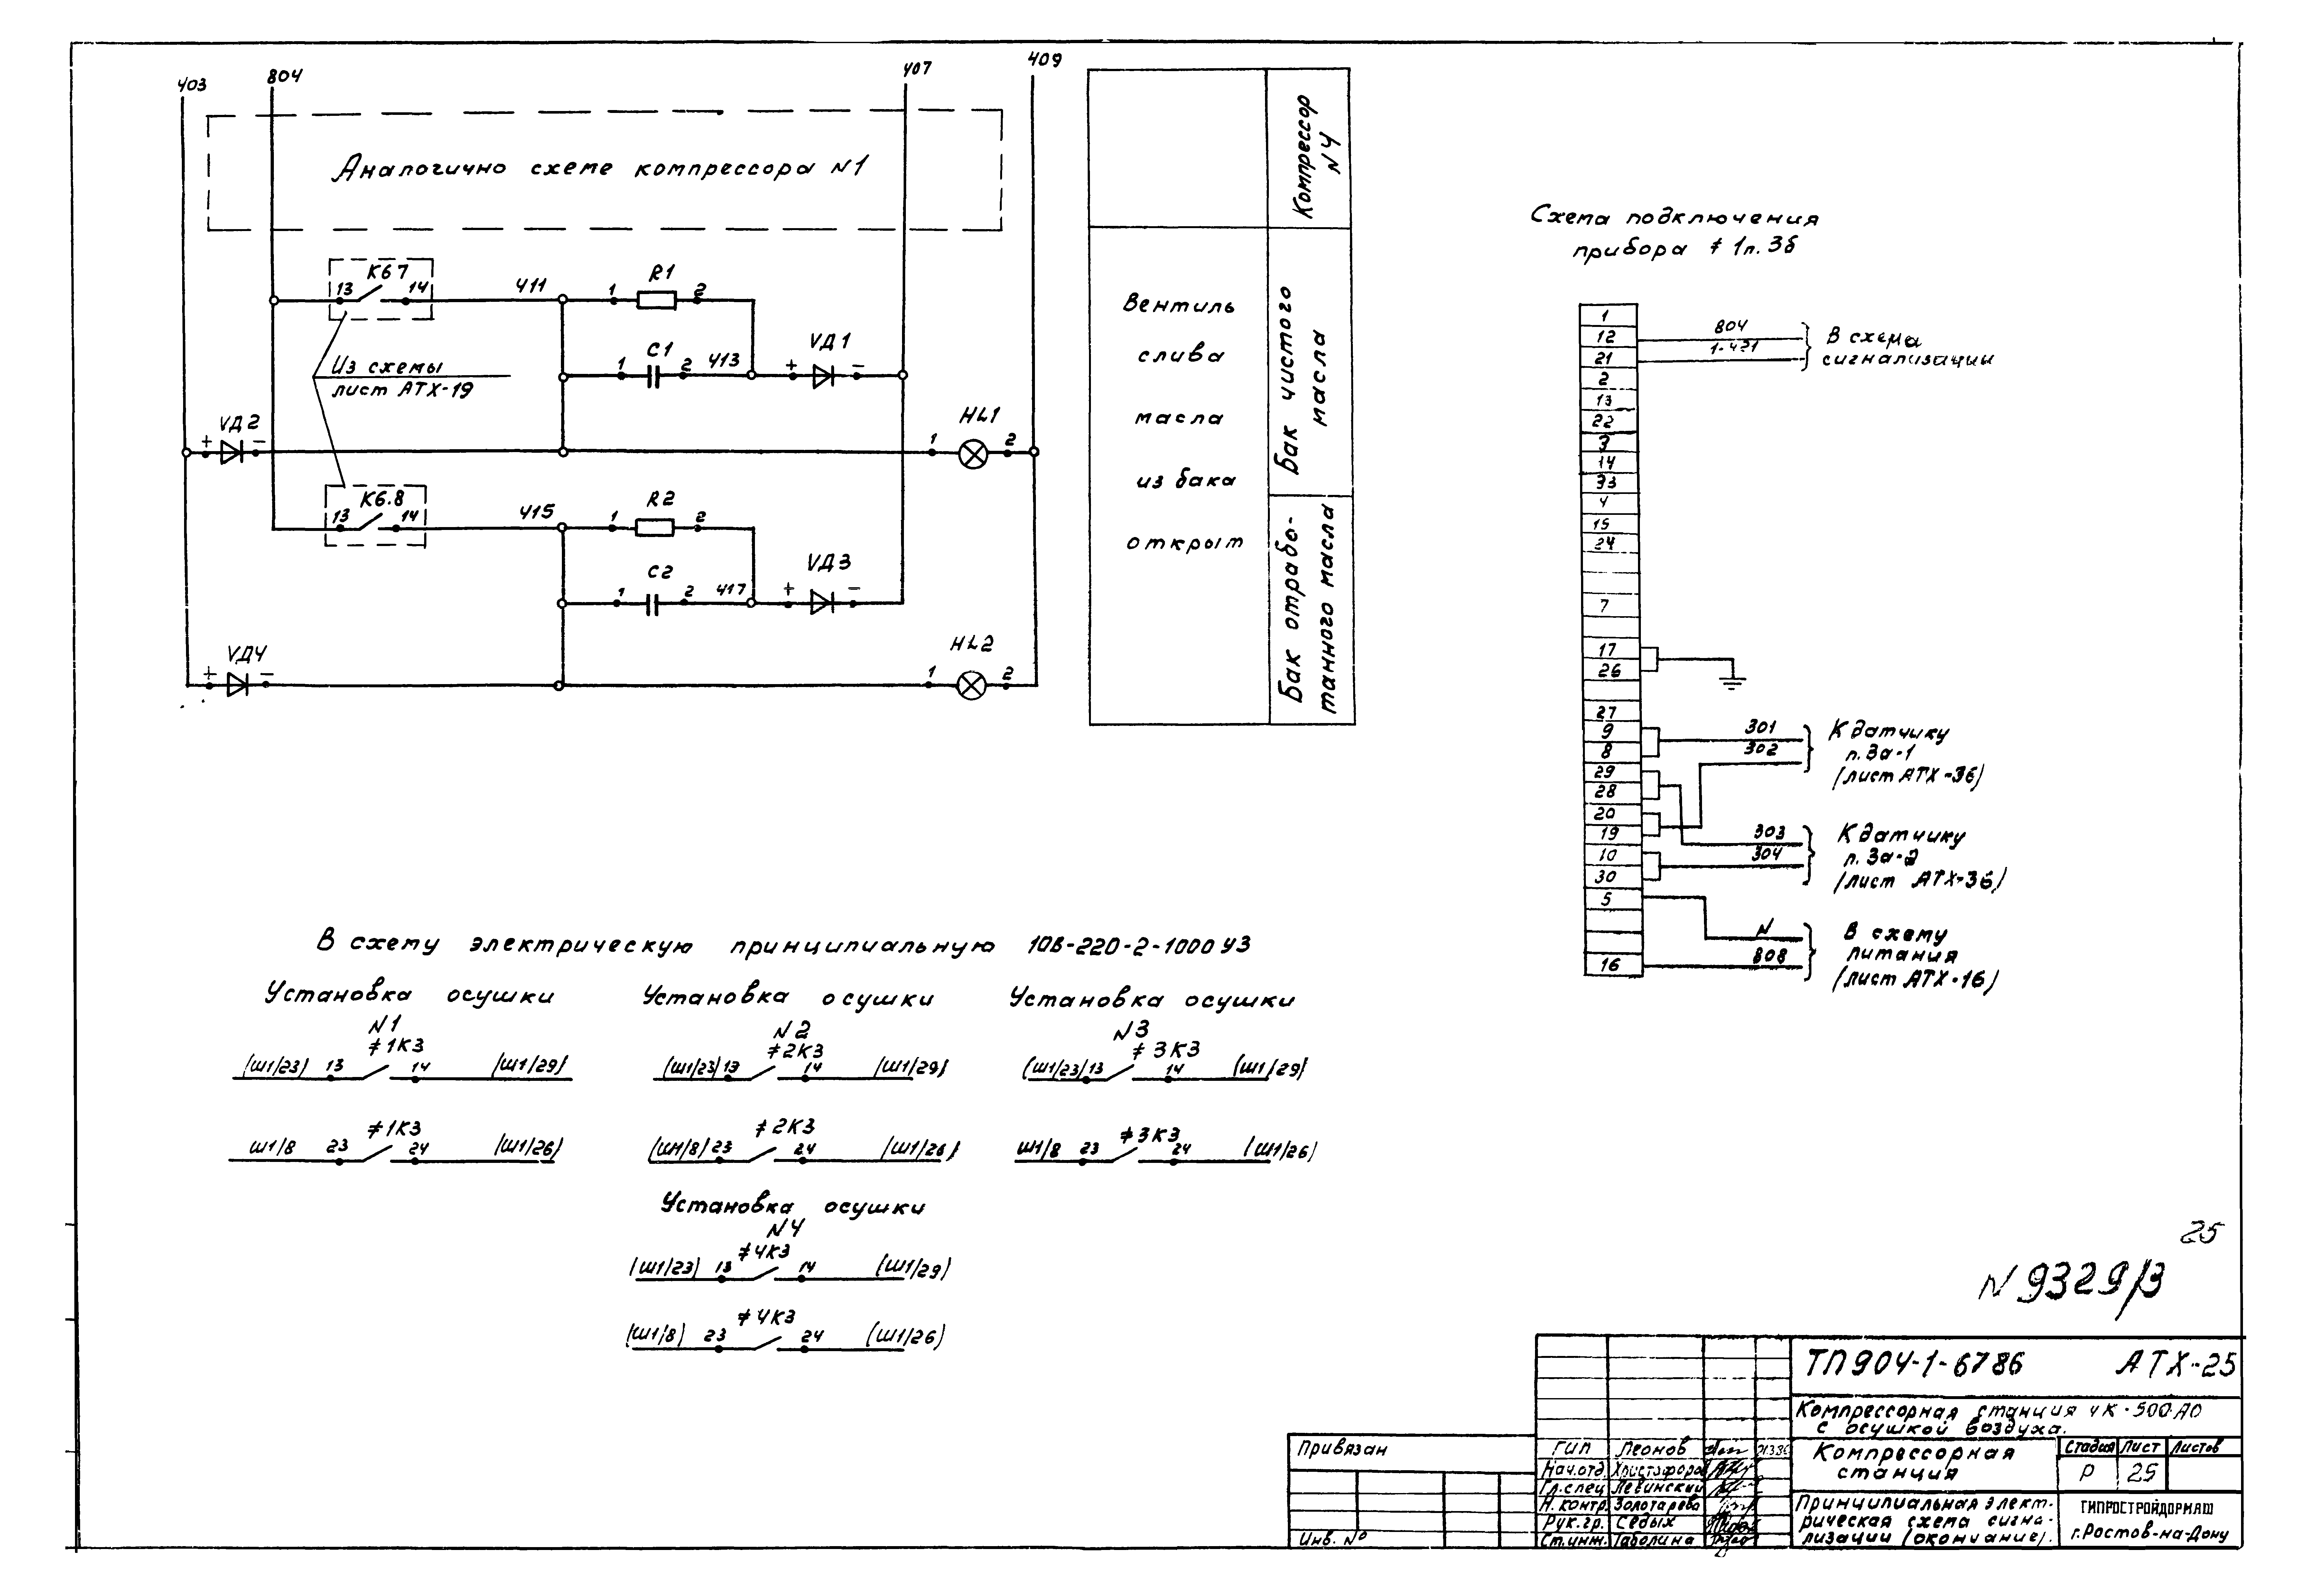 403
804
407
409
Аналогично схеме компрессора N1
К67
13 14
411
R1
1 2
С1
1 2
413
VД1
+ -
Из схемы
лист АТХ-19
VД2
+ -
HL1
1 2
К6.8
13 14
415
R2
1 2
С2
1 2
417
VД3
+ -
VД4
+ -
HL2
1 2
Компрессор
N4
Вентиль
слива
масла
из бака
открыт
Бак чистого
масла
Бак отрабо-
танного масла
Схема подключения
прибора ≠ 1п. 3б
1
12
21
2
13
22
3
14
33
4
15
24
7
17
26
27
9
8
29
28
20
19
10
30
5
16
804
1-421
В схема
сигнализации
301
302
К датчику
п. 3а-1
(лист АТХ-36)
303
304
К датчику
п. 3а-2
(лист АТХ-36)
N
808
В схему
питания
(лист АТХ-16)
В схему электрическую принципиальную 10В-220-2-1000 У3
Установка осушки
N1
≠1К3
(Ш1/23) 13 14 (Ш1/29)
≠1К3
Ш1/8 23 24 (Ш1/26)
Установка осушки
N2
≠2К3
(Ш1/23) 13 14 (Ш1/29)
≠2К3
(Ш1/8) 23 24 (Ш1/26)
Установка осушки
N3
≠3К3
(Ш1/23) 13 14 (Ш1/29)
≠3К3
Ш1/8 23 24 (Ш1/26)
Установка осушки
N4
≠4К3
(Ш1/23) 13 14 (Ш1/29)
≠4К3
(Ш1/8) 23 24 (Ш1/26)
25
N9329/3
ТП904-1-6786 АТХ-25
Компрессорная станция 4К-500-АО
с осушкой воздуха.
Компрессорная
станция
Стадия Лист Листов
Р 25
Принципиальная элект-
рическая схема сигна-
лизации (окончание).
ГИПРОСТРОЙДОРМАШ
г.Ростов-на-Дону
Привязан
Инв. №
ГИП Леонов
Нач.отд. Христофоров
Гл.спец Левинский
Н.контр. Золотарева
Рук.гр. Седых
Ст.инж. Таболина